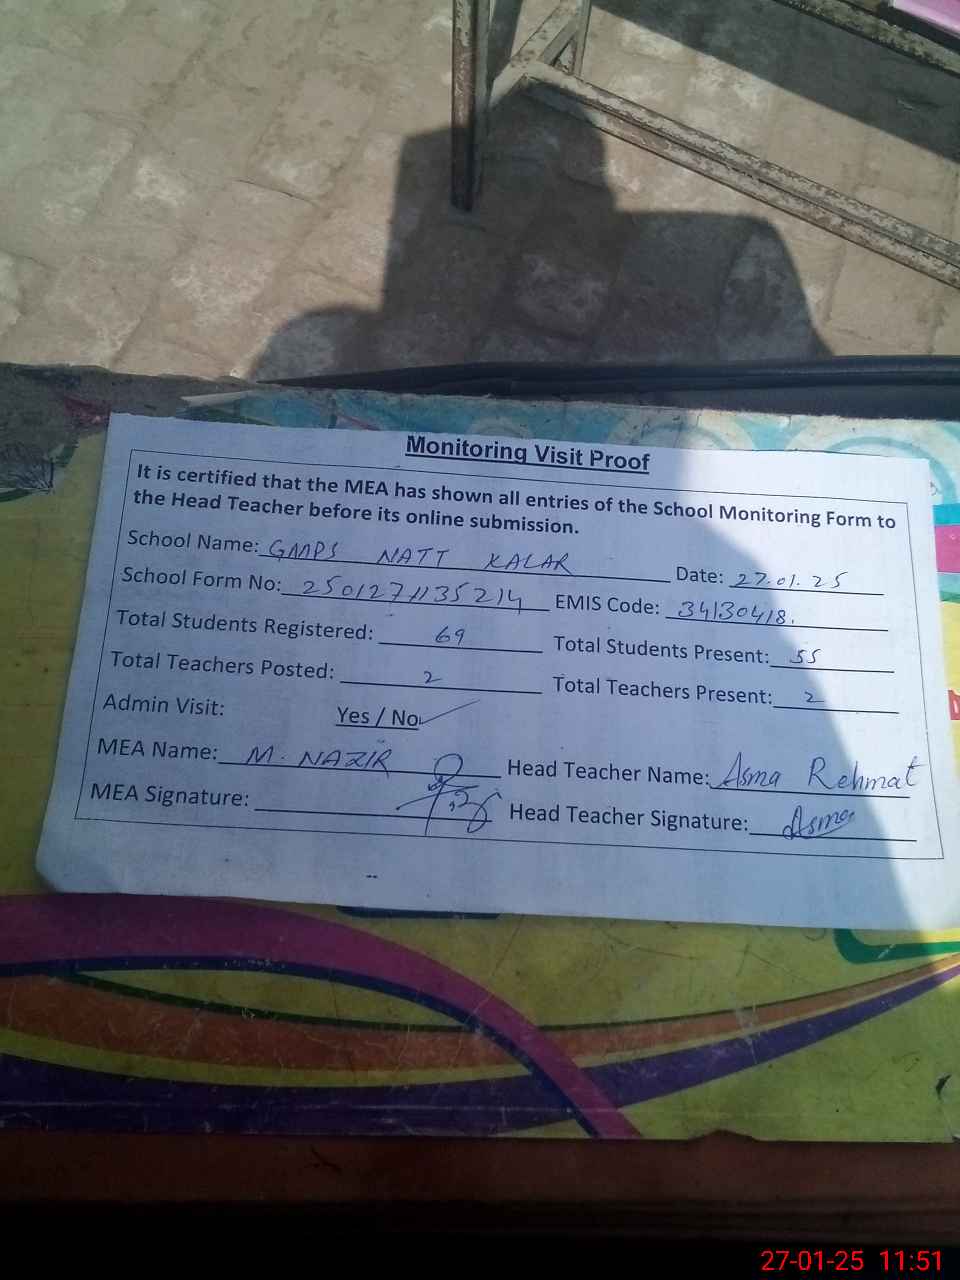 Monitoring Visit Proof
It is certified that the MEA has shown all entries of the School Monitoring Form to
the Head Teacher before its online submission.
School Name: GMPS NATT KALAR Date: 27.01.25
School Form No: 2501271135214 EMIS Code: 34130418.
Total Students Registered: 69 Total Students Present: 55
Total Teachers Posted: 2 Total Teachers Present: 2
Admin Visit: Yes / No ✓
MEA Name: M. NAZIR Head Teacher Name: Asma Rehmat
MEA Signature: Head Teacher Signature: Asma
27-01-25 11:51